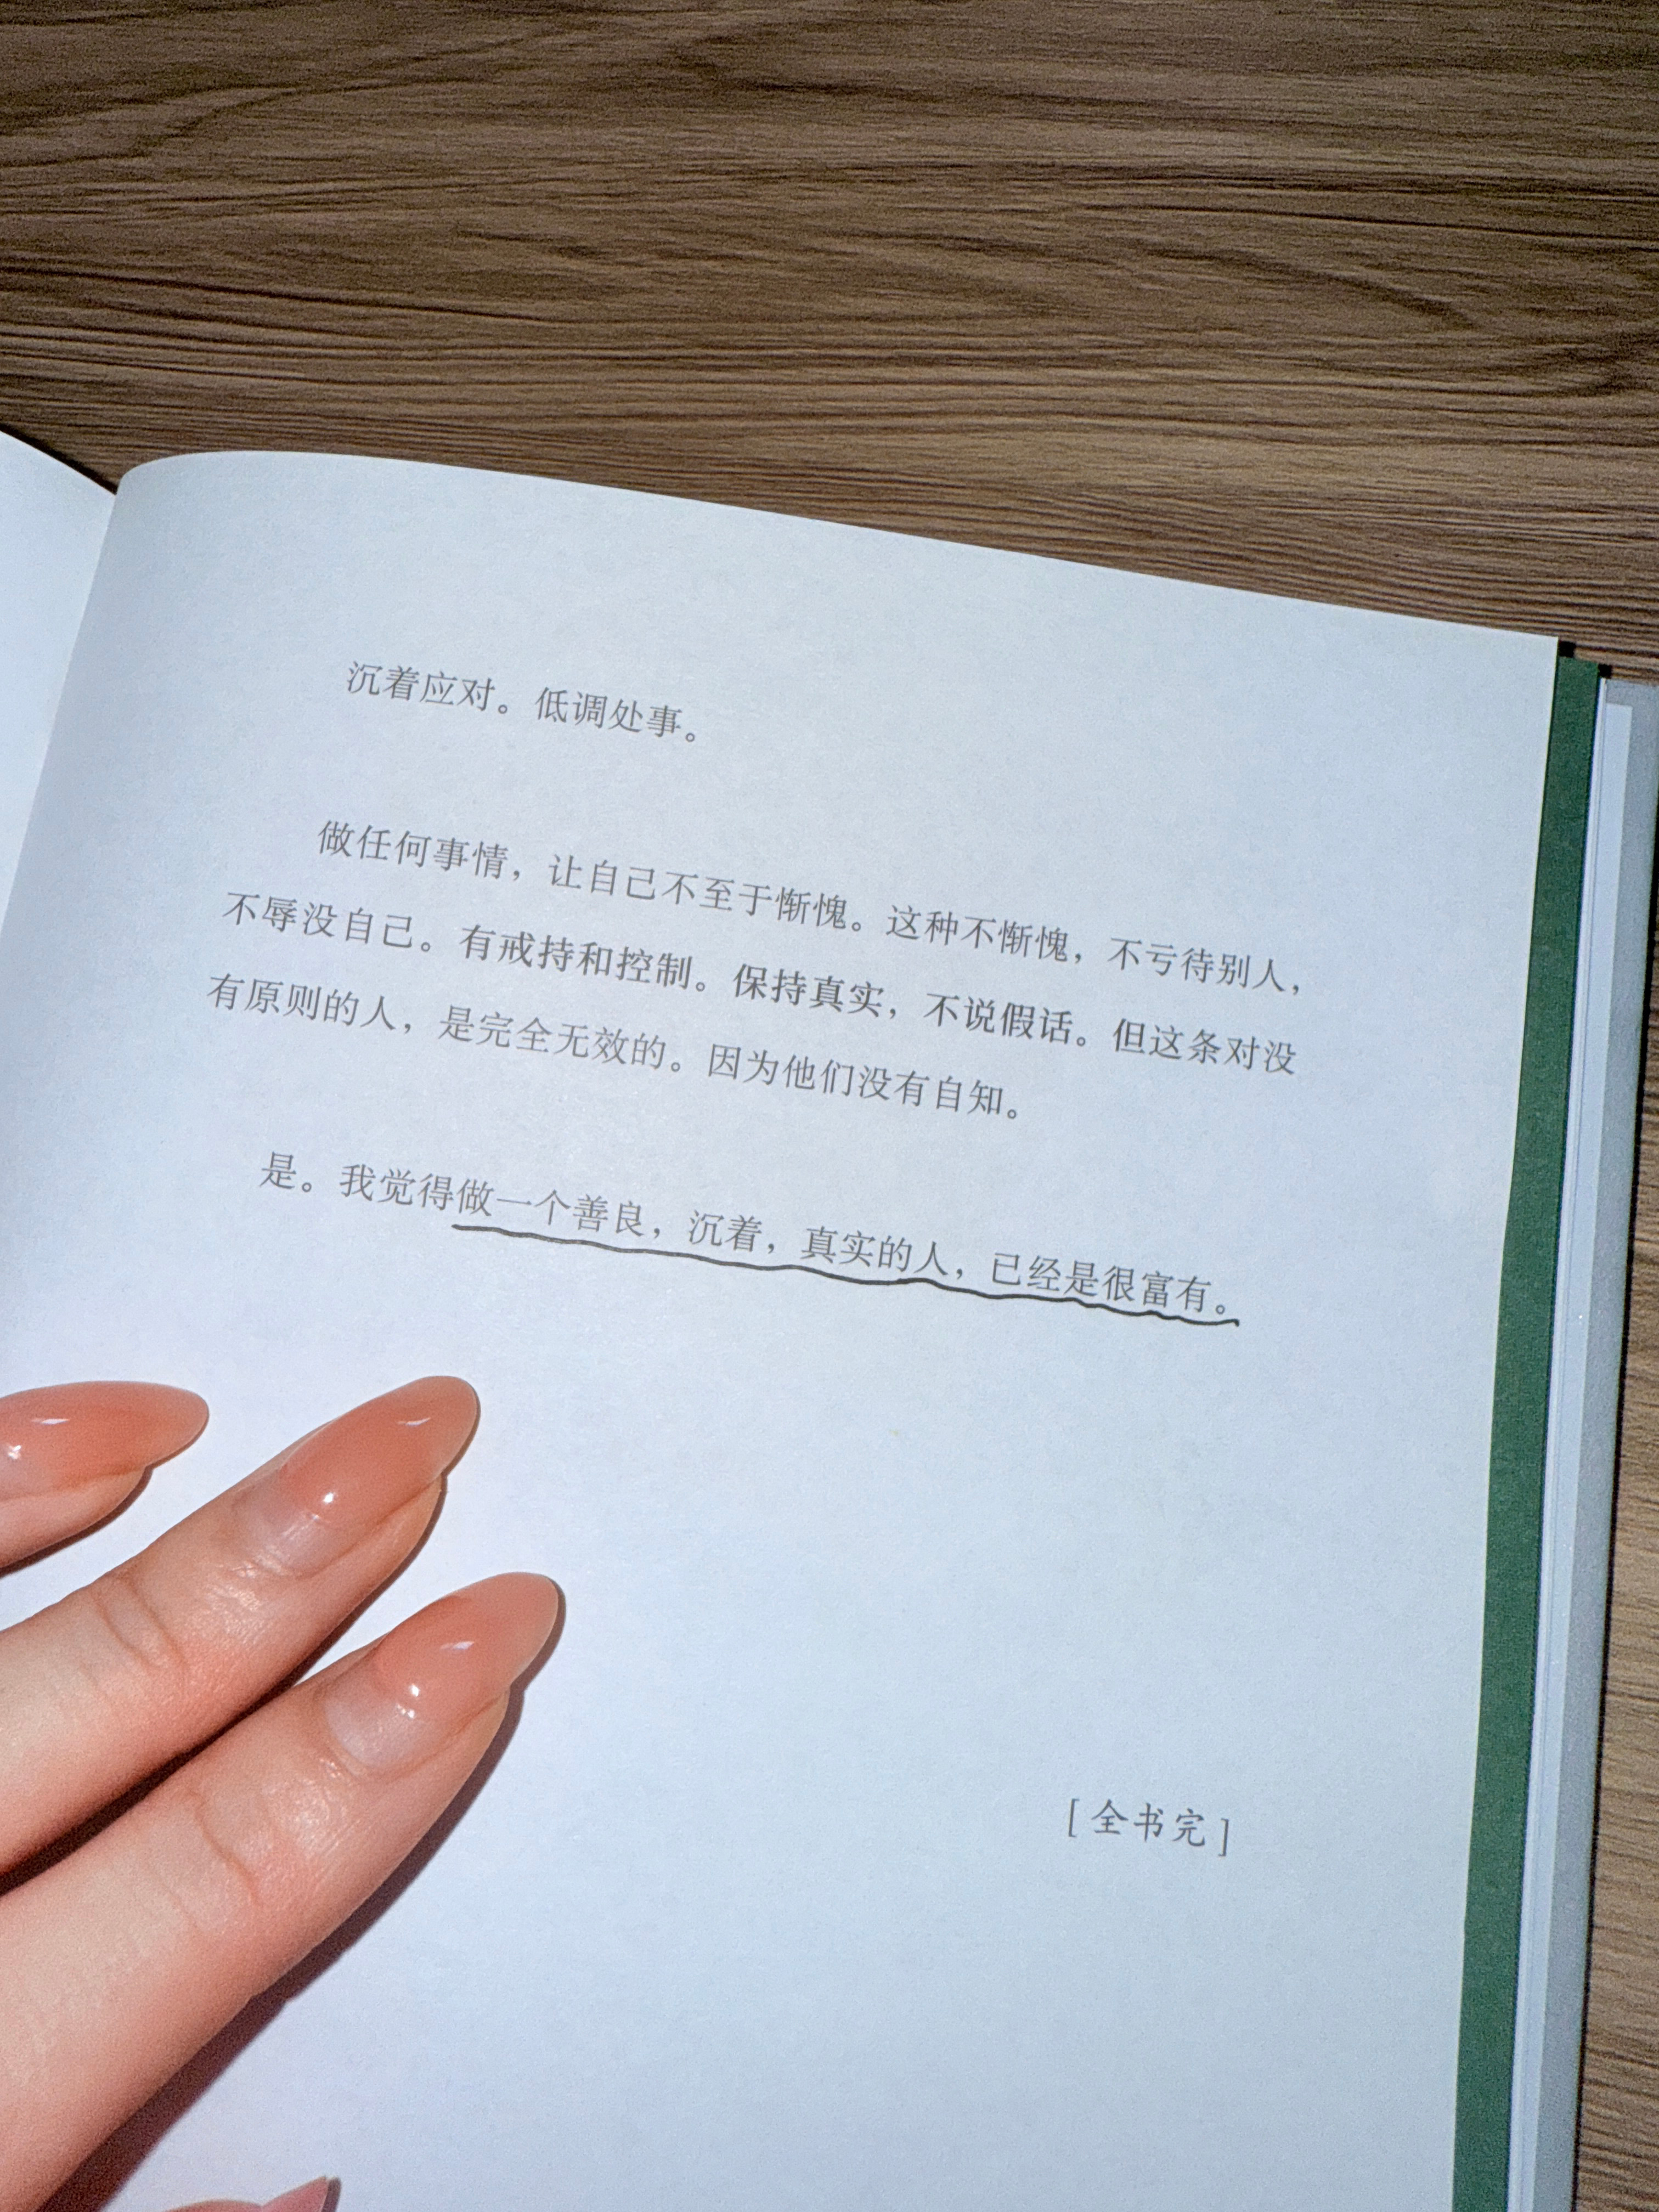 沉着应对。低调处事。
做任何事情，让自己不至于惭愧。这种不惭愧，不亏待别人，
不辱没自己。有戒持和控制。保持真实，不说假话。但这条对没
有原则的人，是完全无效的。因为他们没有自知。
是。我觉得做一个善良，沉着，真实的人，已经是很富有。
[全书完]